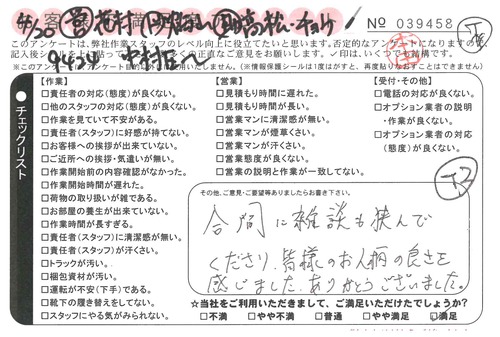 No 039458
このアンケートは、弊社作業スタッフのレベル向上に役立てたいと思います。否定的なアンケートになりますが、
記入後シールを貼ってお出し下さい。
※このアンケート
チェックリスト
【作業】
□責任者の対応(態度)が良くない。
□他のスタッフの対応(態度)が良くない。
□作業を見ていて不安がある。
□責任者(スタッフ)に好感が持てない。
□お客様への挨拶が出来ていない。
□ご近所への挨拶・気遣いが無い。
□作業開始前の内容確認がなかった。
□作業開始時間が遅れた。
□荷物の取り扱いが雑である。
□お部屋の養生が出来ていない。
□作業時間が長すぎる。
□責任者(スタッフ)に清潔感が無い。
□責任者(スタッフ)が汗くさい。
□トラックが汚い。
□梱包資材が汚い。
□運転が不安(下手)である。
□靴下の履き替えをしてない。
□スタッフにやる気がみられない。
【営業】
□見積もり時間に遅れた。
□見積もり時間が長い。
□営業マンに清潔感が無い。
□営業マンが煙草くさい。
□営業マンが汗くさい。
□営業態度が良くない。
□営業の説明と作業が一致してない。
【受付・その他】
□電話の対応が良くない。
□オプション業者の説明
・作業が良くない。
□オプション業者の対応
(態度)が良くない。
その他、ご意見・ご要望等ありましたらお書き下さい。
合間に雑談も挟んで
くださり、皆様のお人柄の良さを
感じました。ありがとうございました。
☆当社をご利用いただきまして、ご満足いただけたでしょうか?
□不満 □やや不満 □普通 □やや満足 □満足